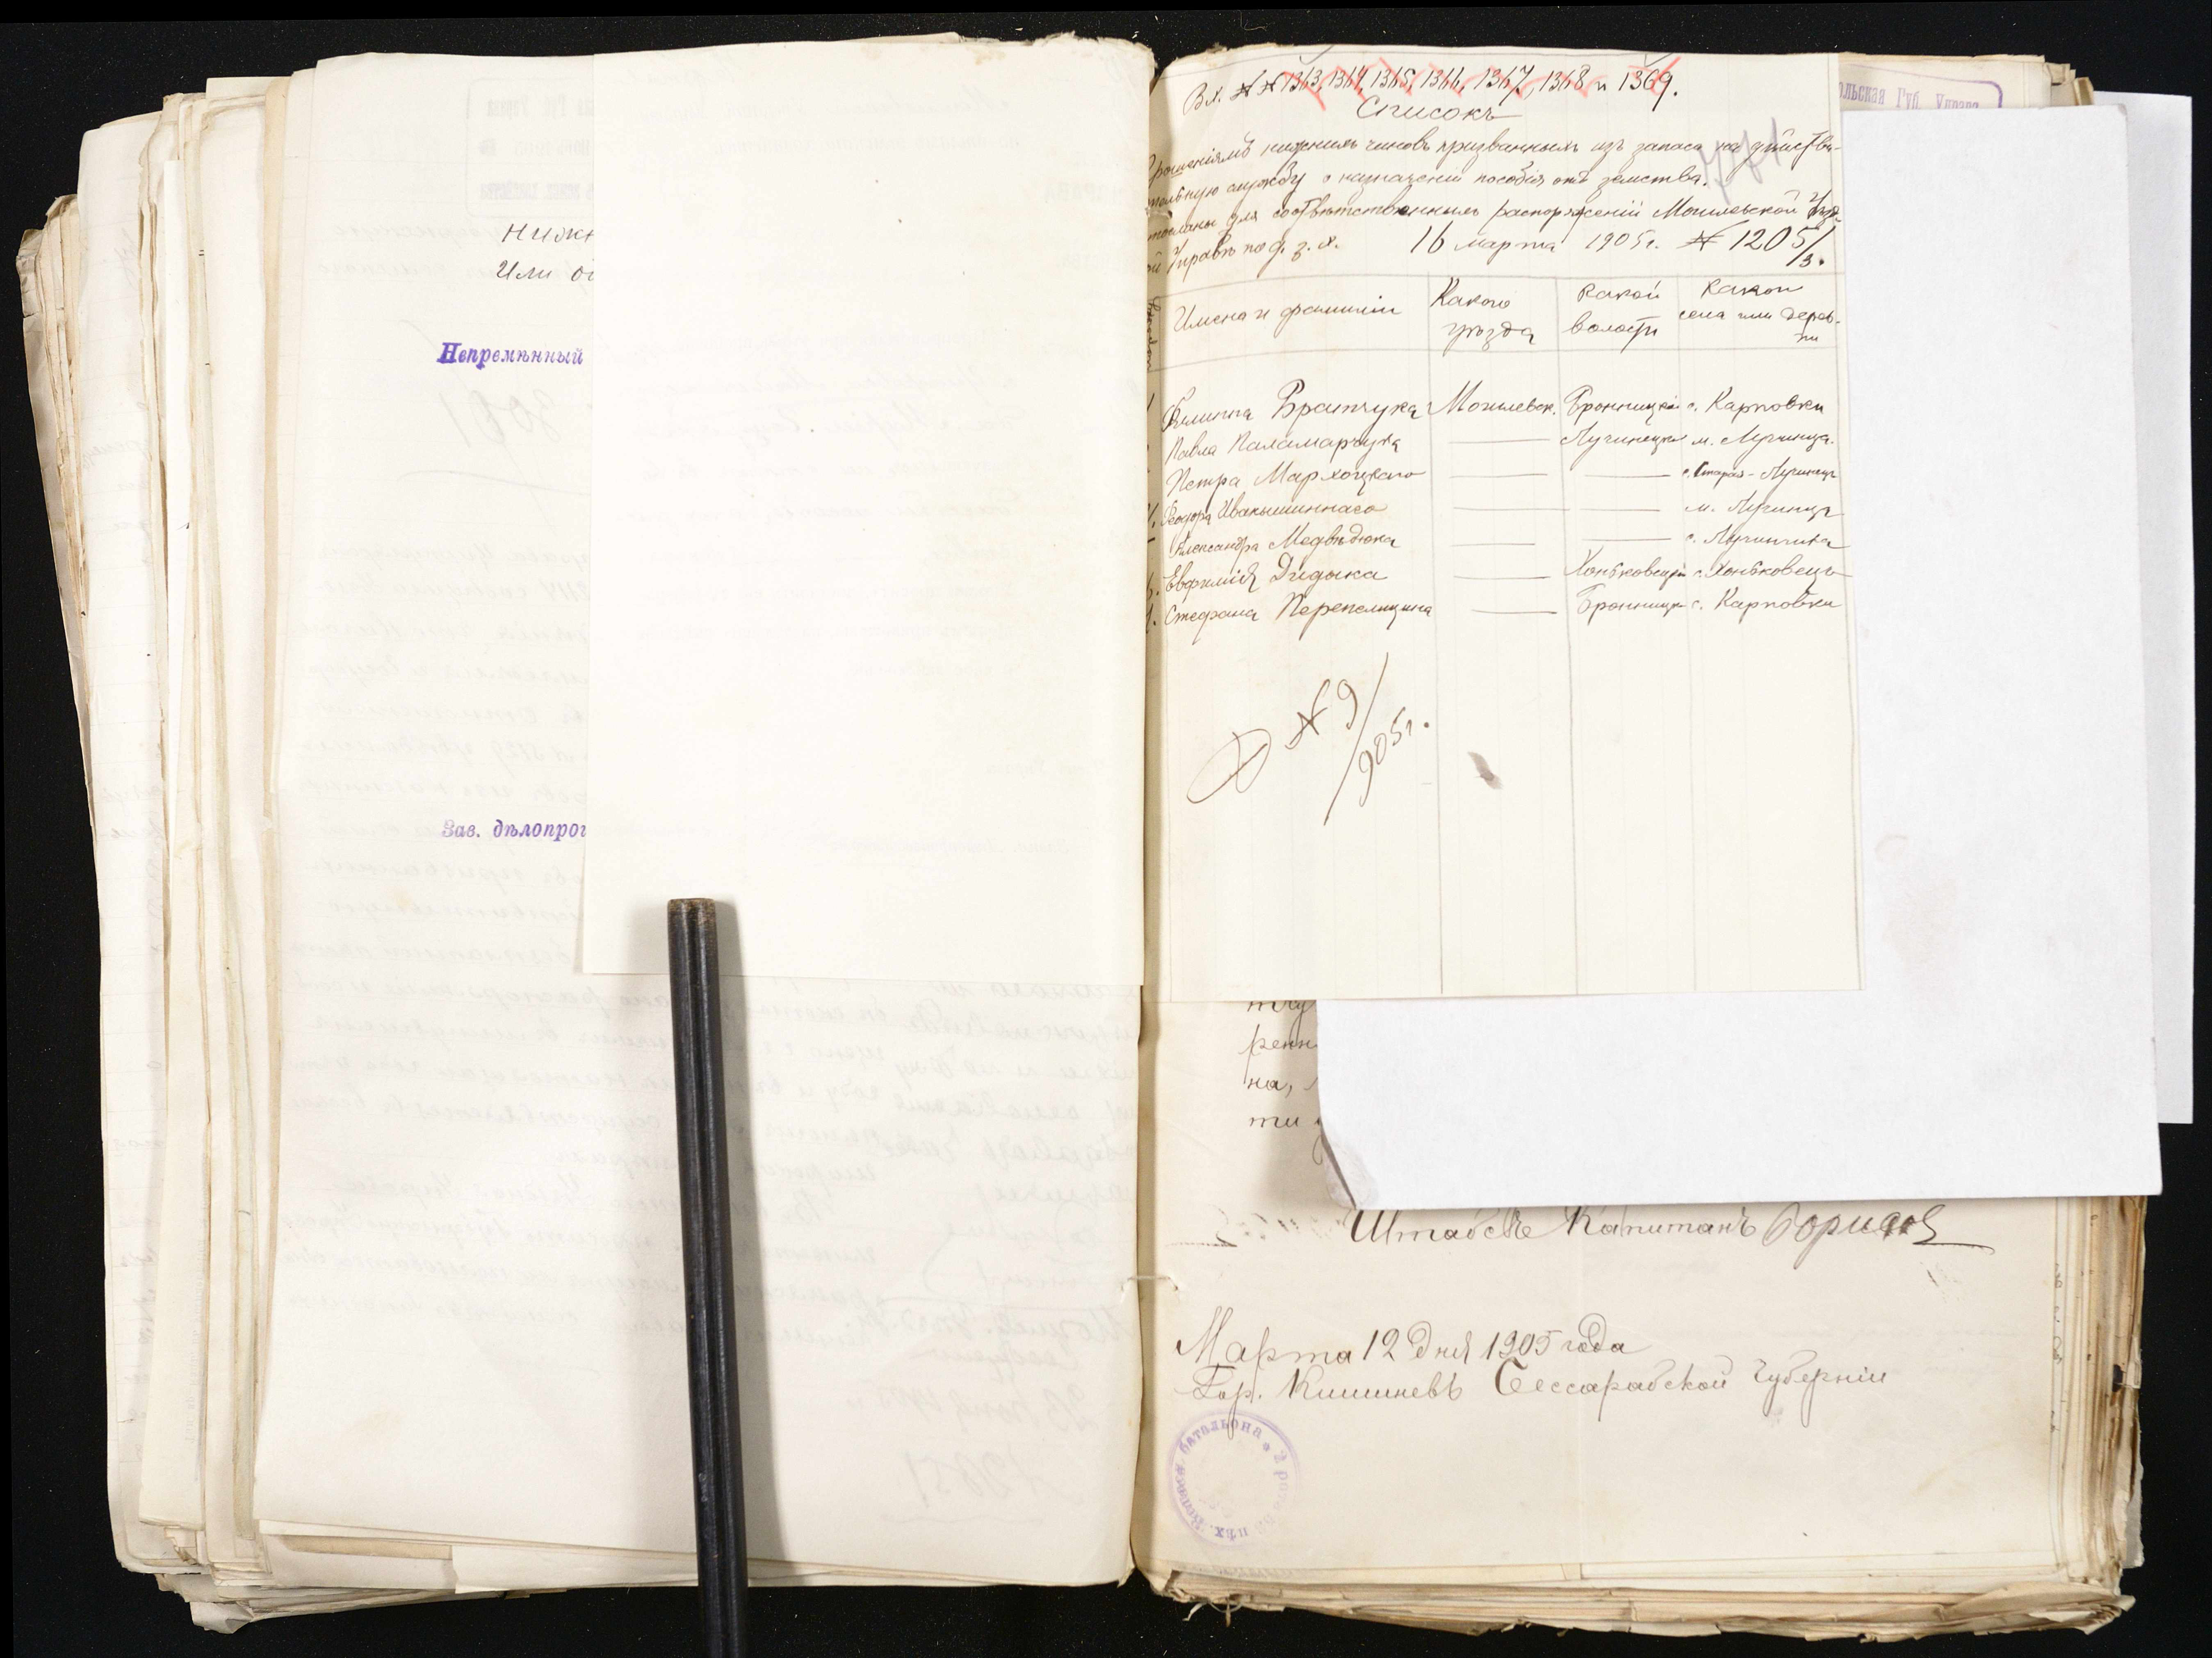 нижн
или
Непремѣнный
Зав. дѣлопрои
Вх. №№ 1363, 1364, 1365, 1366, 1367, 1368 и 1369.
Списокъ
прошеніямъ нижнихъ чиновъ призванныхъ изъ запаса на дѣйстви-
тельную службу о назначеніи пособія отъ земства.
для соотвѣтственныхъ распоряженій Могилевской Уѣзд-
ной Управѣ по ф. з. х. 16 марта 1905 г. № 1205/3.
Имена и фамиліи
Какого уѣзда
Какой волости
Какой села или дерев-
ни
Филиппа Братчука Могилевск. Бронницкой с. Карповки
Павла Паламарчука — Лучинецк. м. Лучинца.
Петра Мархоцкаго — — с. Старая-Лучинец
4. Федора Ивакышиннаго — — м. Лучинца
Александра Медвѣдюка — — с. Лучинчика
6. Евфимія Дидыка — Хоньковецкой с. Хоньковецъ
7. Стефана Перепелицына — Бронницк. с. Карповки
Д № 9/905 г.
ольская Губ. Управа
ренн
на,
ти
Штабсъ Капитанъ Борисов
Марта 12 дня 1905 года
Гор. Кишиневъ Бессарабской губерніи
пѣх. запасн. батальона * 2 рота